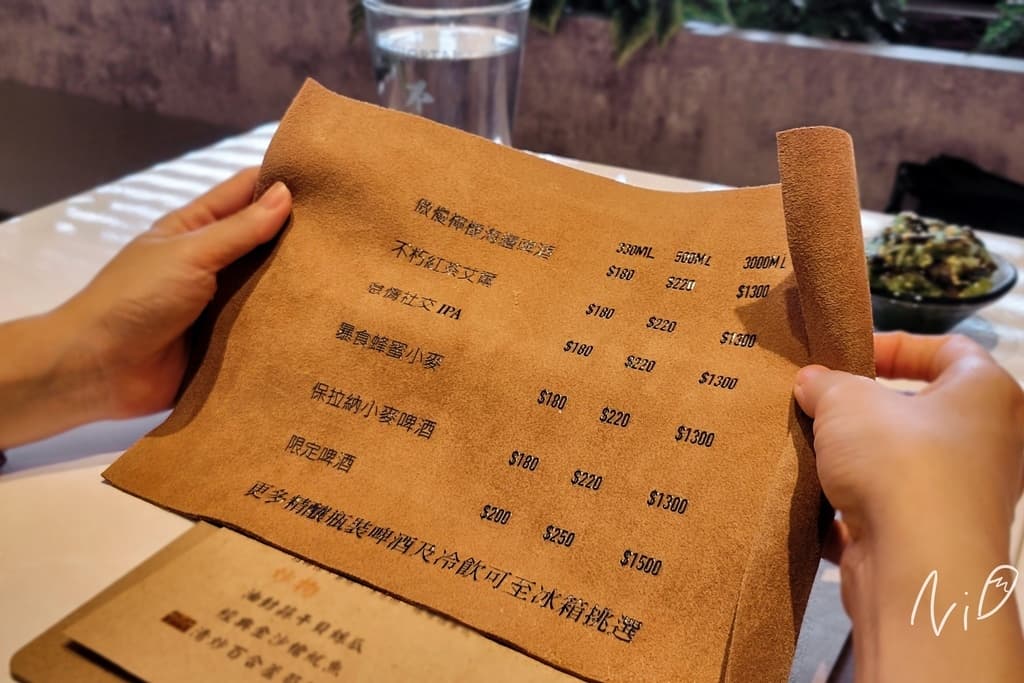 330ML 500ML 3000ML
傲慢檸檬海鹽啤酒 $180 $220 $1300
不朽紅茶艾爾 $180 $220 $1300
怠惰社交 IPA $180 $220 $1300
暴食蜂蜜小麥 $180 $220 $1300
保拉納小麥啤酒 $180 $220 $1300
限定啤酒 $200 $250 $1500
更多精釀瓶裝啤酒及冷飲可至冰箱挑選
經典金沙
清炒百合蘆
NiD